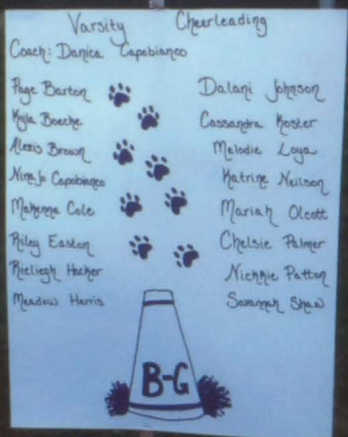 Varsity Cheerleading
Coach: Danica Capobianco
Page Barton
Kyla Boeche
Alexis Brown
NinaJo Capobianco
Makenna Cole
Riley Easton
Rieliegh Hocker
Meadow Harris
Dalani Johnson
Cassandra Koster
Melodie Loya
Katrine Neilson
Mariah Olcott
Chelsie Palmer
Nichkie Patton
Savannah Shaw
B-G